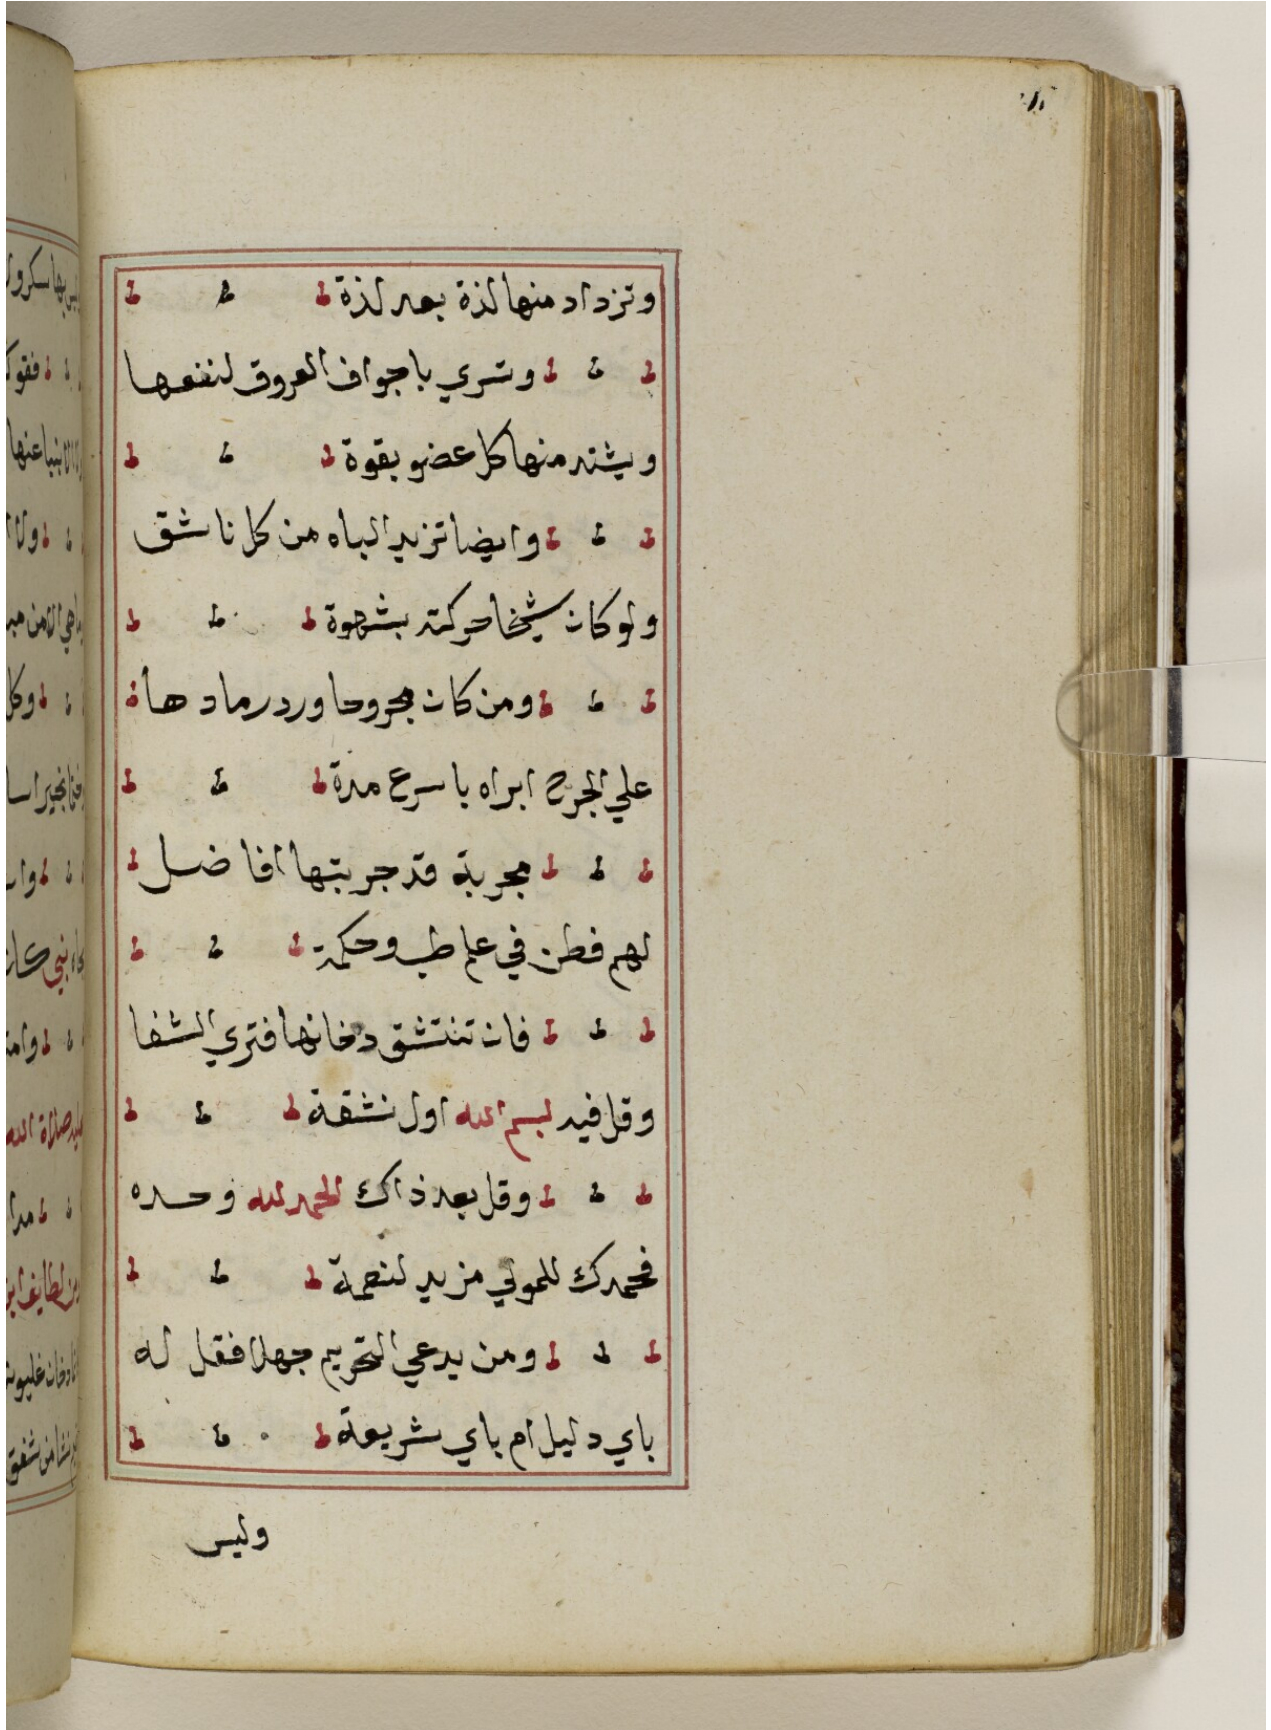 وتزداد منها لذة بعد لذة
وتسري باجواف العروق لنفعها
ويشتد منها كل عضو بقوة
وايضا تزيد الباه من كل ناشق
ولو كان شيخا حركته بشهوة
ومن كان مجروحا وردرمادها
علي الجرح ابراه باسرع مدة
مجربة قد جربتها افاضل
لهم فطن في علم طب وحكمة
فان تنتشق دخانها فتري الشفا
وقل فيه بسم الله اول نشقة
وقل بعد ذاك الحمد لله وحده
فحمدك للمولي مزيد لنعمة
ومن يدعي التحريم جهلا فقل له
باي دليل ام باي شريعة
وليس